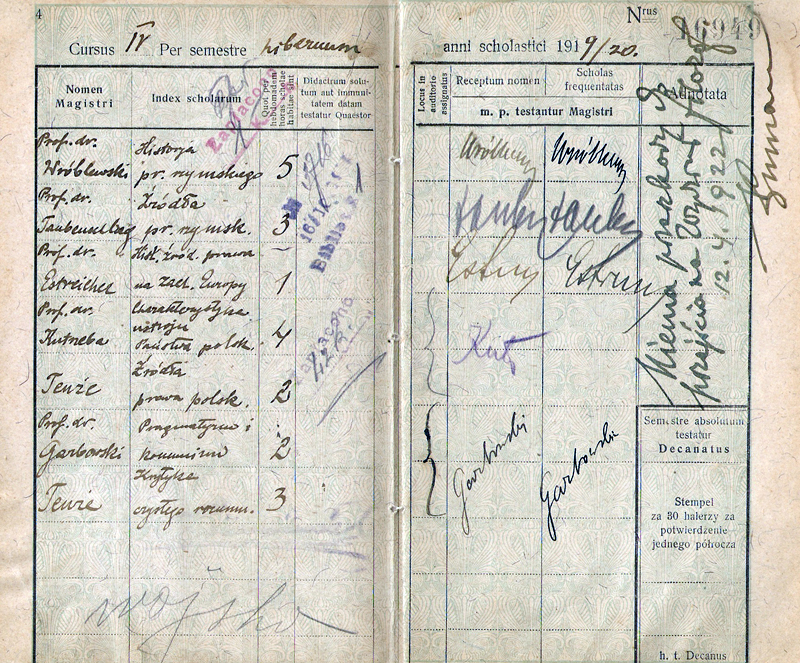 4
Cursus IV Per semestre hibernum
Nomen Magistri
Index scholarum
Quot per hebdomadem horas scholae habitae sint
Didactrum solutum aut immunitatem datam testatur Quaestor
Zapłacono
Prof. dr. Wróblewski
Historja pr. rzymskiego
5
Prof. dr. Taubenschlag
Źródła pr. rzymsk.
3
Prof. dr. Estreicher
Hist. źród. prawa na zach. Europy
1
Prof. dr. Kutrzeba
Charakterystyka ustroju Państwa polsk.
4
Tenże
Źródła prawa polsk.
2
Prof. dr. Garbowski
Pragmatyzm i komunizm
2
Tenże
Krytyka czystego rozumu.
3
Zapłacono
wojsko
Nrus 16949
anni scholastici 1919/20.
Locus in auditorio assignatus
Receptum nomen
Scholas frequentatas
m. p. testantur Magistri
Adnotata
Wróblewski
Wróblewski
Estrei
Estrei
Kutrz
Garbowski
Garbowski
Niema przeszkody do
przejścia na Uniwersytet
12. 4. 1922
Semestre absolutum
testatur
Decanatus
Stempel
za 30 halerzy za
potwierdzenie
jednego półrocza
h. t. Decanus